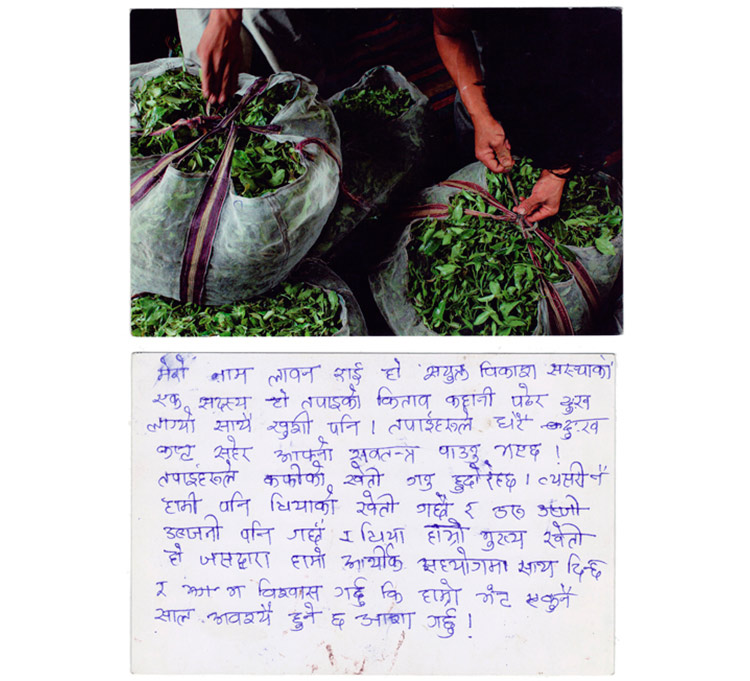 मेरो नाम लावन राई हो सयुक्त विकाश सस्थाको
एक सदस्य हो तपाइको किताव कहानी पढेर दुख
लाग्यो साथै खुशी पनि । तपाईहरुले धेरै दुःख
कष्ट सहेर आफ्नो सवतन्त्र पाउनु भएछ ।
तपाईहरुले कफीको खेती गनु हुदोरहेछ । त्यसरी नै
हामी पनि चियाको खेती गर्छौ र अरु
पनि गर्छौ र चिया हाम्रो मुख्य खेती
हो जसद्वारा हामो आर्थीक सहयोगमा साथ दिन्छ
र म विश्वास गर्छु कि हाम्रो भेट एकुनै
साल अवश्यै हुने छ आशा गर्छु !